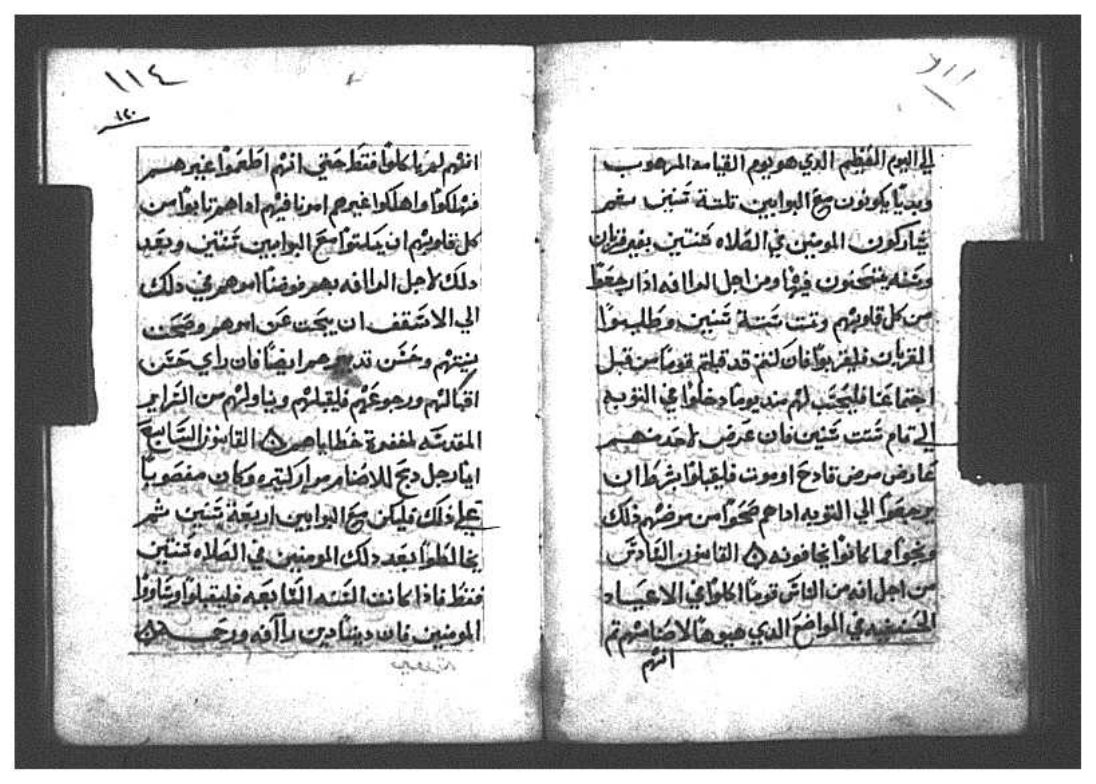 الي اليوم العظيم الدي هو يوم القيامه المرهوب
ويديا يكونون مع البوابين تلتة سنين ثم
يشاركون المومنين في الصلاه سنتين بغير قربان
وسنه يمتحنون فيها ومن اجل الداافه ادا رجعوا
من كل قلوبهم وتمت ستة سنين وطلبوا
القربان فليقربوا فان كنتم قد قبلتم قوما من قبل
اجتماعنا فليحسب لهم مند يوما دخلوا في التوبه
الي تمام ست سنين فان عرض لاحد منهم
عارض مرض قادح او موت فليقبلوا بشرط ان
يرجعوا الي التوبه اداهم صحوا من مرضهم ذلك
ونجوا مما كانوا يخافونه القانون السادس
من اجل انه من الناس قوما اكلوا في الاعياد
الحنيفيه في المواضع الدي هيوها لاصنامهم ثم
انهم
١١٤
١٢٠
انهم لم ياكلوا فقط حتي انهم اطعموا غيرهم
فهلكوا واهلكوا غيرهم امرنا فيهم اداهم تابوا من
كل قلوبهم ان يلبتوا مع البوابين سنتين وبعد
دلك لاجل الداافه بهم فوضنا امرهم في دلك
الي الاسقف ان يبحت عن امرهم وصحت
نيتهم وحسن تدبيرهم ايضا فان راي حسن
اقبالهم ورجوعهم فليقبلهم ويناولهم من السراير
المقدسه لمغفرة خطاياهم القانون السابع
ايما رجل دبح للاصنام مرار كتيره وكان مغصوبا
علي ذلك فليكن مع البوابين اربعة سنين ثم
يخالطوا بعد دلك المومنين في الصلاه سنتين
فقط فاذا كانت السنه السابعه فليقبلوا ويشاركوا
المومنين فان ديننا دين راافه ورحمه